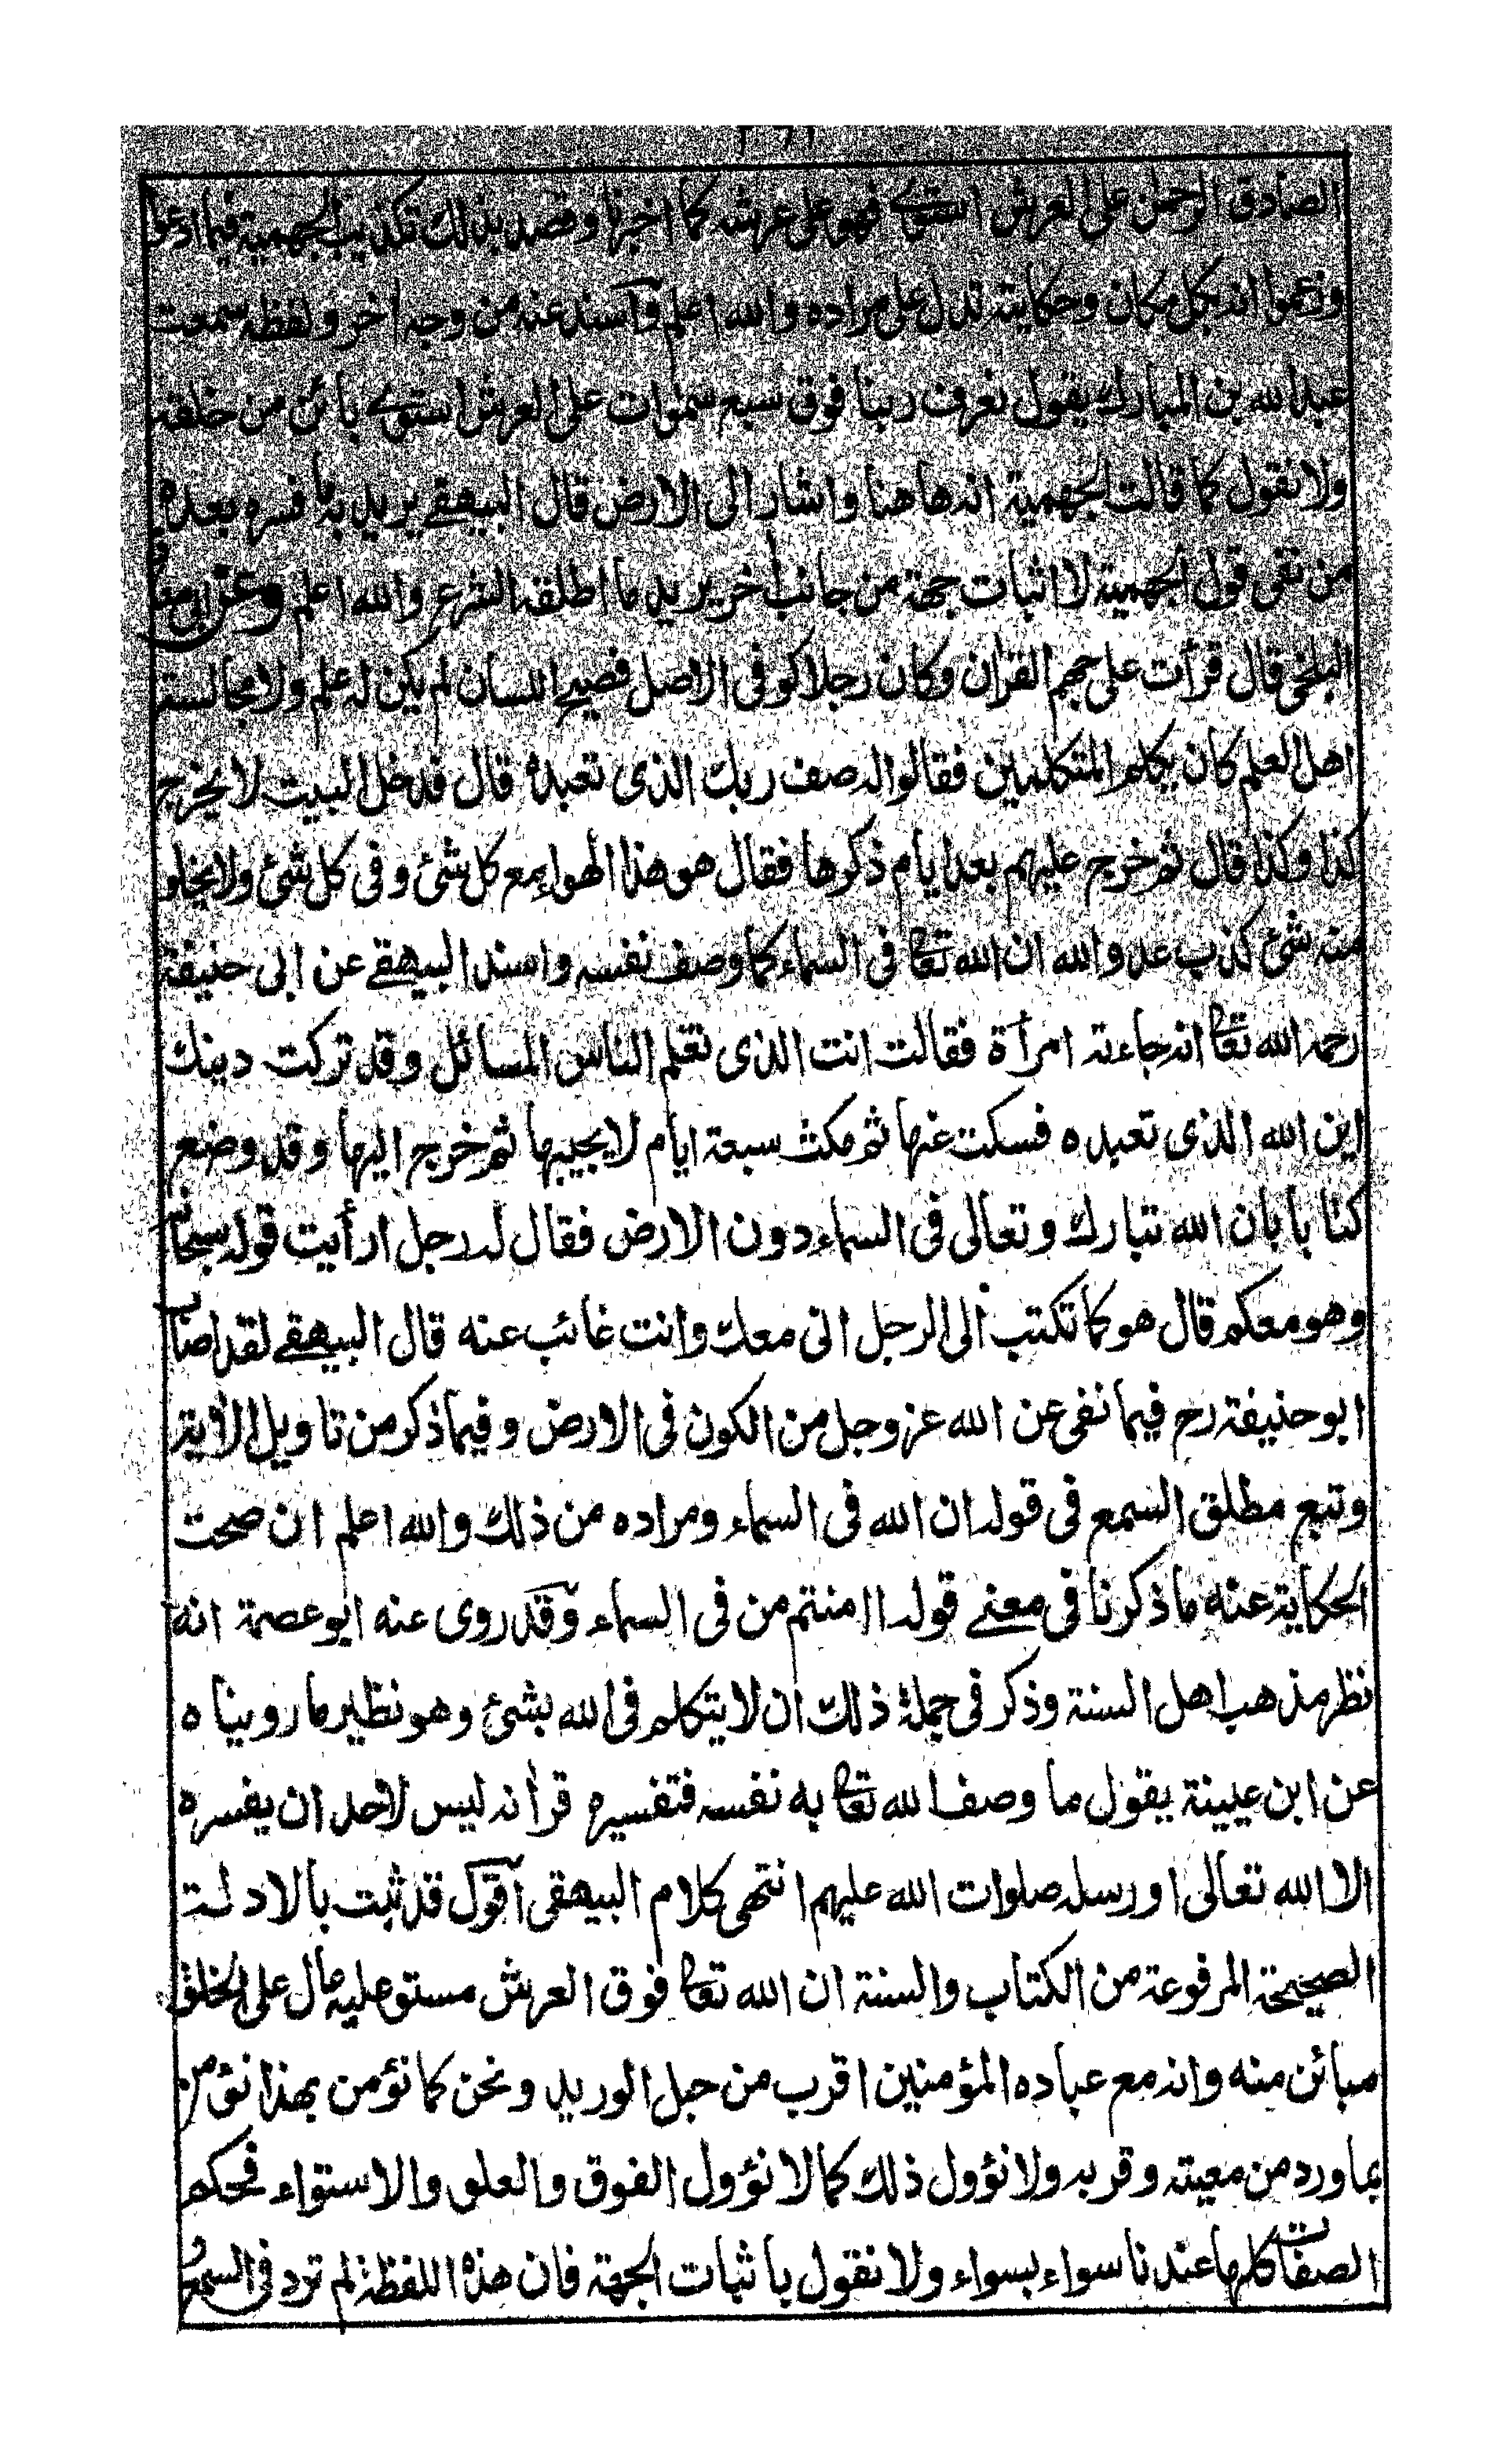 الصادق الرحمن على العرش استوى فهو على عرشه كما اخبرنا وقصد بذلك تكذيب الجهمية فيما ادعوا
وزعموا انه بكل مكان وحكايته تدل على مراده والله اعلم وآسند عنه من وجه اخر ولفظه سمعت
عبدالله بن المبارك يقول نعرف ربنا فوق سبع سموات على العرش استوى بائن من خلقه
ولا نقول كما قالت الجهمية انه هاهنا واشار الى الارض قال البيهقے يريد به ما فسره بعده
من نفى قول الجهمية لا اثبات جهة من جانب اخر يريد ما اطلقه الشرع والله اعلم وعن ابى معاذ
البلخى قال قرأت على جهم القرآن وكان رجلا كوفى الاصل فصيح اللسان لم يكن له علم ولا مجالسة
اهل العلم كان يكلم المتكلمين فقالوا له صف ربك الذى تعبدهٗ قال فدخل البيت لا يخرج
كذا وكذا قال ثم خرج عليهم بعد ايام ذكرها فقال هو هذا الهواء مع كل شئ وفى كل شئ ولا يخلو
منه شئ كذب عدو الله ان الله تعالى فى السماء كما وصف نفسه واسند البيهقے عن ابى حنيفة
رحمه الله تعالى انه جاءته امرأة فقالت انت الذى تعلم الناس المسائل وقد تركت دينك
اين الله الذى تعبده فسكت عنها ثم مكث سبعة ايام لا يجيبها ثم خرج اليها وقد وضع
كتابا بان الله تبارك وتعالى فى السماء دون الارض فقال له رجل ارأيت قوله سبحانه
وهو معكم قال هو كما تكتب الى الرجل انى معك وانت غائب عنه قال البيهقے لقد اصاب
ابو حنيفة رح فيما نفى عن الله عز وجل من الكون فى الارض وفيما ذكر من تاويل الأية
وتبع مطلق السمع فى قوله ان الله فى السماء ومراده من ذلك والله اعلم ان صحت
الحكاية عنه ما ذكرنا فى معنے قوله اامنتم من فى السماء وقد روى عنه ابو عصمة انه
نظر مذهب اهل السنة وذكر فى جملة ذلك ان لا يتكلم فى الله بشئ وهو نظير ما رويناه
عن ابن عيينة يقول ما وصف الله تعالى به نفسه فتفسيره قرأته ليس لاحد ان يفسره
الا الله تعالى او رسله صلوات الله عليهم انتهى كلام البيهقى آقول قد ثبت بالادلة
الصحيحة المرفوعة من الكتاب والسنة ان الله تعالى فوق العرش مستو عليه عال على الخلق
مبائن منه وانه مع عباده المؤمنين اقرب من حبل الوريد ونحن كما نؤمن بهذا نؤمن
بما ورد من معيته وقربه ولا نؤول ذلك كما لا نؤول الفوق والعلو والاستواء فحكم
الصفات كلها عندنا سواء بسواء ولا نقول باثبات الجهة فان هذه اللفظة لم ترد فى السمع